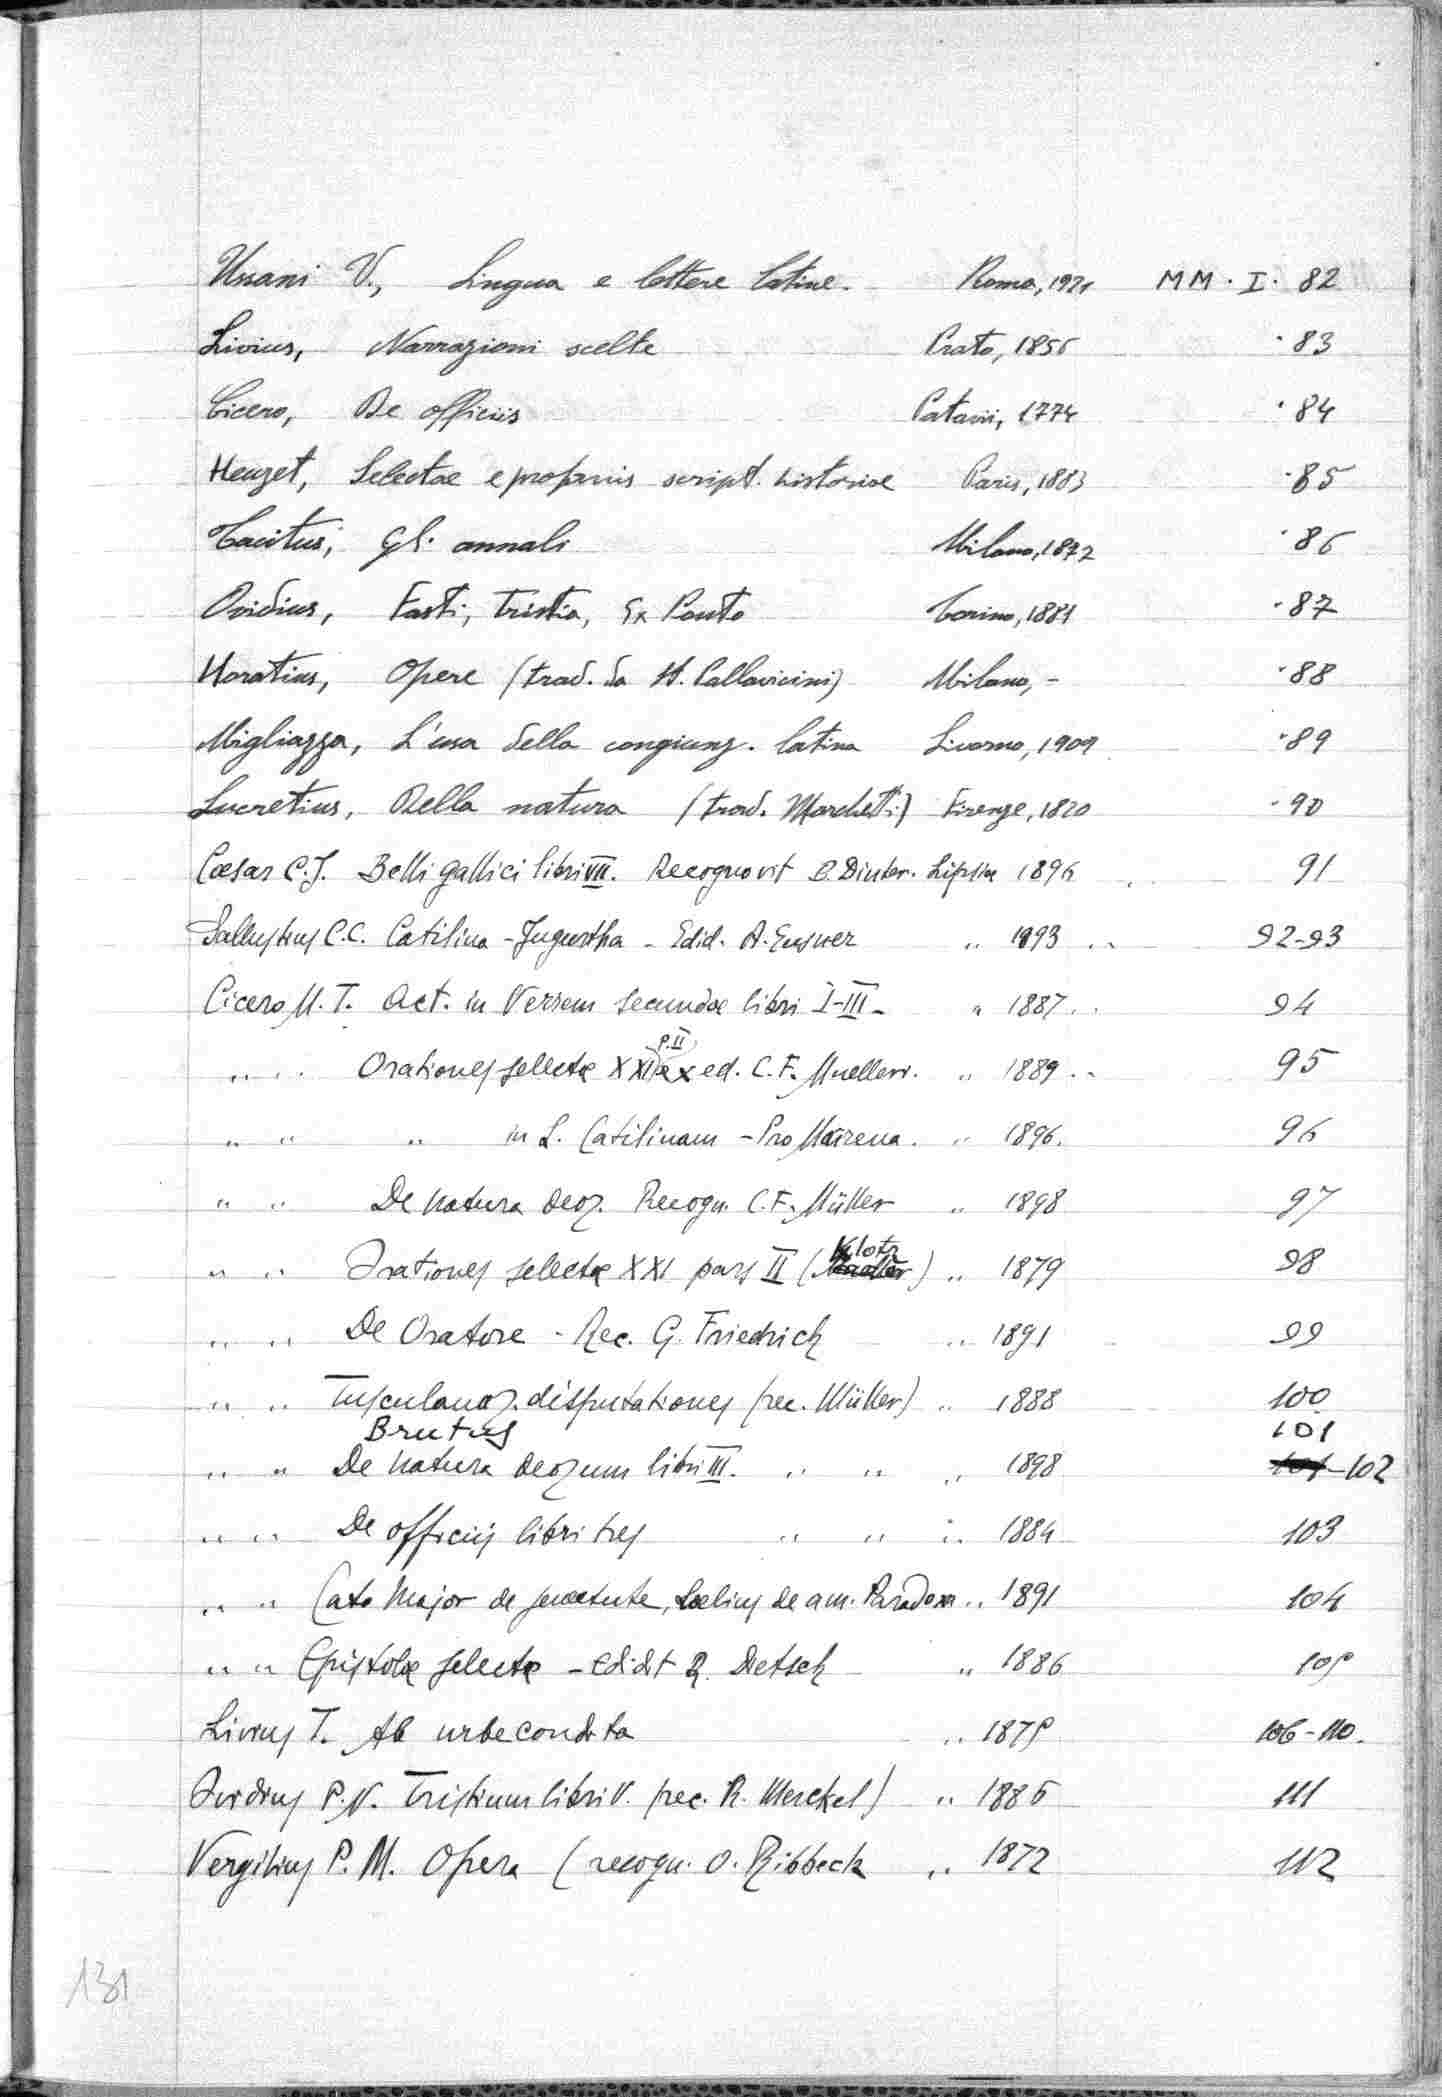 Ussani V., Lingua e lettere latine. Roma, 1921 MM. I. 82
Livius, Narrazioni scelte Prato, 1856 " 83
Cicero, De officiis Patavii, 1774 " 84
Heuzet, Selectae e profanis script. historiae Paris, 1883 " 85
Tacitus, Gli annali Milano, 1872 " 86
Ovidius, Fasti, Tristia, Ex Ponto Torino, 1881 " 87
Horatius, Opere (trad. da H. Pallavicini) Milano, - " 88
Migliazza, L'uso della congiunz. latina Livorno, 1909 " 89
Lucretius, Della natura (trad. Marchetti) Firenze, 1820 " 90
Cæsar C.J. Belli gallici libri VII. Recognovit B. Dinter. Lipsiæ 1896 91
Sallustius C.C. Catilina - Jugurtha - Edid. A. Eusner " 1893 92-93
Cicero M. T. Act. in Verrem secundæ libri I-III - " 1887 94
" " Orationes selectæ XXI P. II ed. C. F. Mueller. " 1889 95
" " " in L. Catilinam - Pro Murena. " 1896. 96
" " De natura deoꝝ. Recogn. C. F. Müller " 1898 97
" " Orationes selectæ XXI pars II (Klotz) " 1879 98
" " De Oratore - Rec. G. Friedrich " 1891 99
" " Tusculanaꝝ. disputationes (rec. Müller) " 1888 100
Brutus 101
" " De natura deoꝝum libri III. " " " 1898 101-102
" " De officiis libri tres " " " 1884 103
" " Cato Major de senectute, Lælius de am. Paradoxa " 1891 104
" " Epistolæ selectæ - edidit R. Dietsch " 1886 105
Livius T. Ab urbe condita " 1875 106-110.
Ovidius P. N. Tristium libri V. (rec. R. Merckel) " 1885 111
Vergilius P. M. Opera (recogn. O. Ribbeck " 1872 112
131